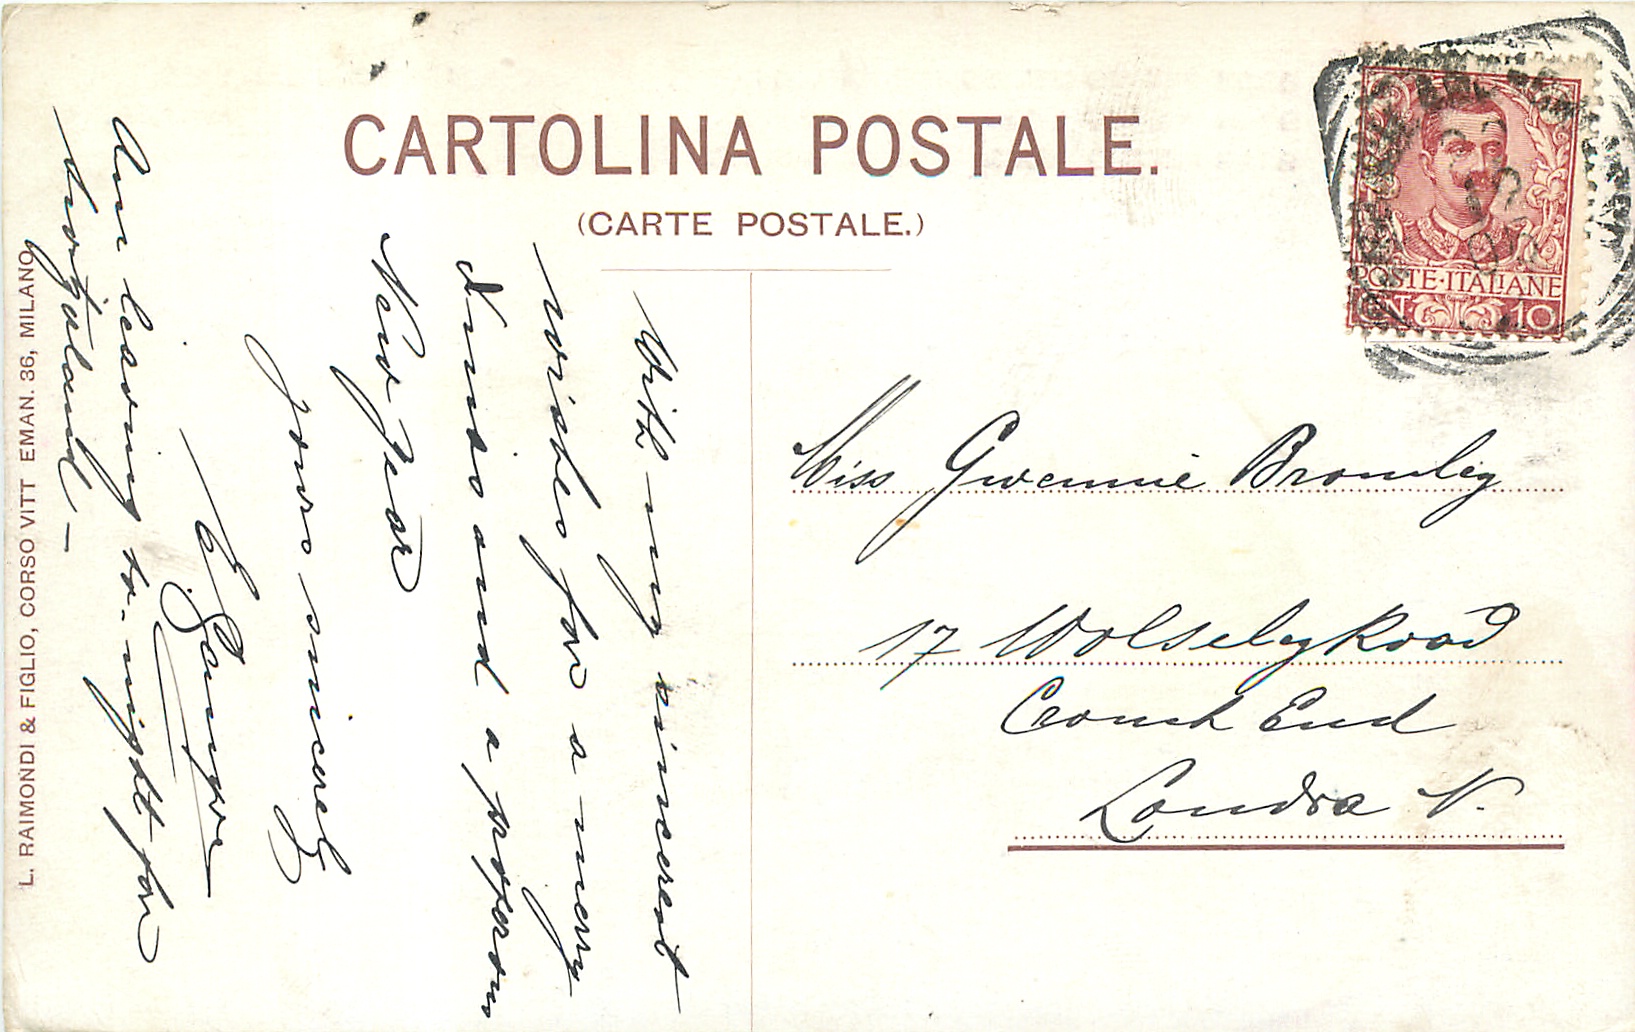 CARTOLINA POSTALE.
(CARTE POSTALE.)
With my sincerest
wishes for a merry
Xmas and a prosperous
New Year
Yours sincerely
Am leaving to-night for
Switzerland —
Miss Gwennie Bromley
17 Wolseley Road
Crouch End
Londra N.
POSTE·ITALIANE
CENT 10
L. RAIMONDI & FIGLIO, CORSO VITT EMAN. 36, MILANO